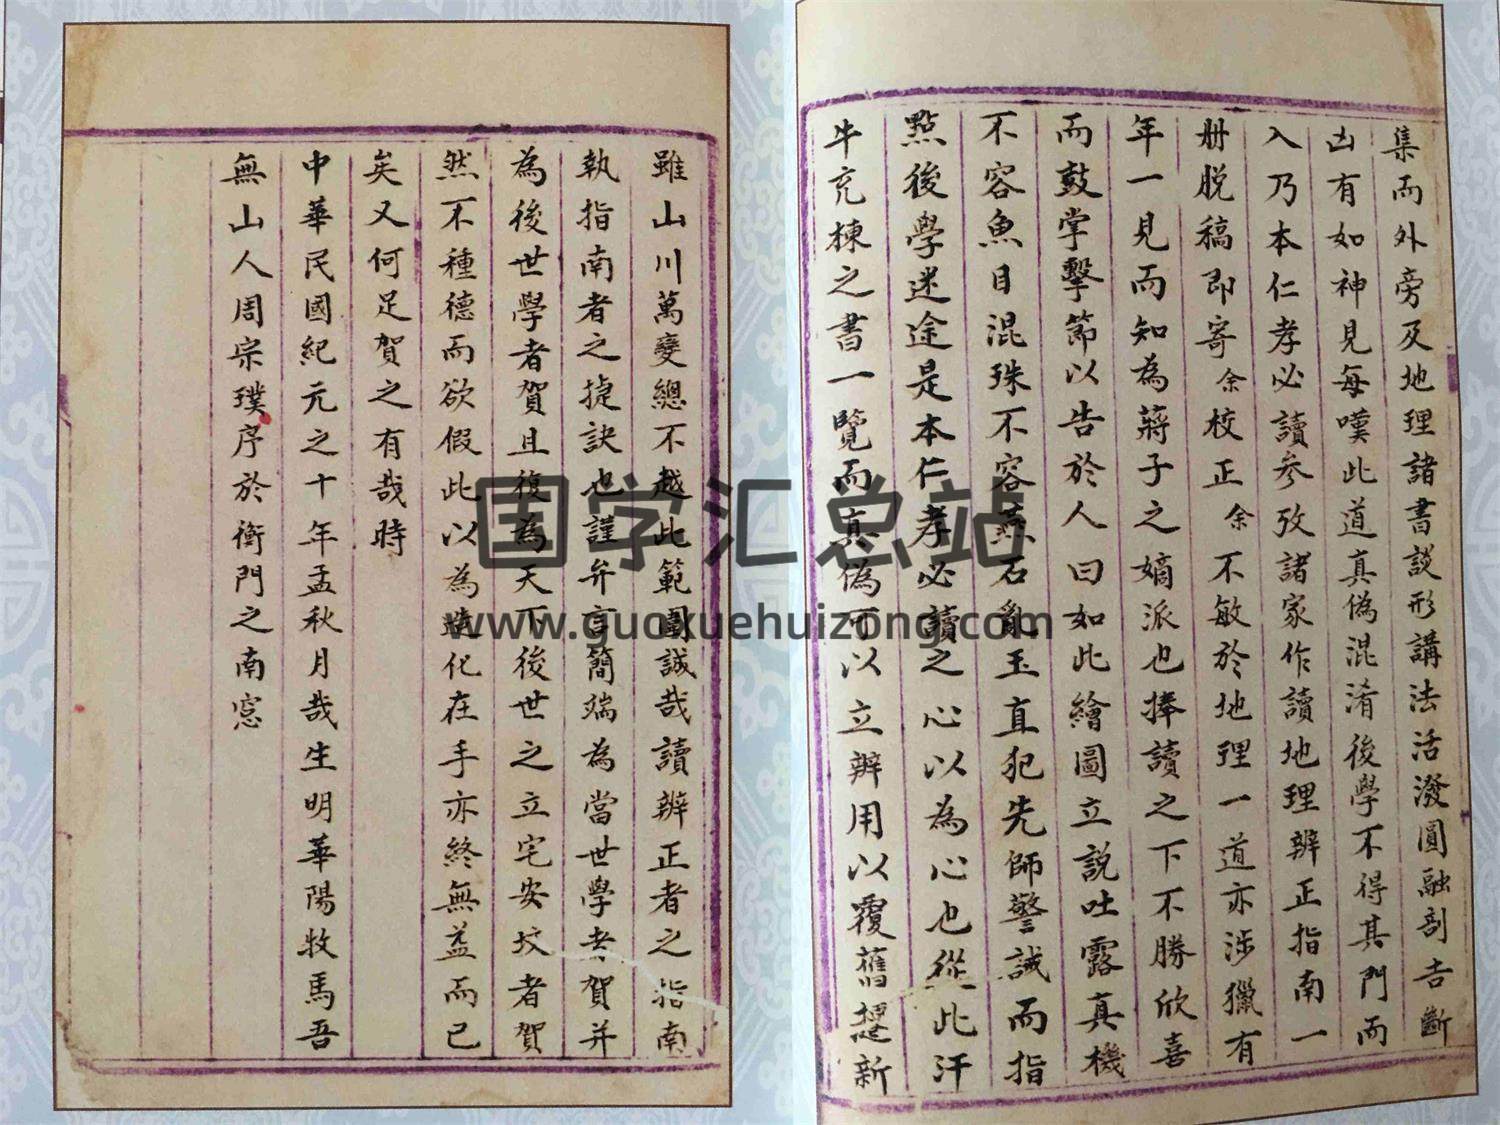 集而外旁及地理諸書談形講法活潑圓融剖吉斷
凶有如神見每嘆此道真偽混淆後學不得其門而
入乃本仁孝必讀參攷諸家作讀地理辨正指南一
册脱稿即寄余校正余不敏於地理一道亦涉獵有
年一見而知為蔣子之嫡派也捧讀之下不勝欣喜
而鼓掌擊節以告於人曰如此繪圖立說吐露真機
不容魚目混珠不容燕石亂玉直犯先師警誡而指
點後學迷途是本仁孝必讀之心以為心也從此汗
牛充棟之書一覽而真偽可以立辨用以覆舊趣新
雖山川萬變總不越此範圍誠哉讀辨正者之指南
執指南者之捷訣也謹弁言簡端為當世學者賀并
為後世學者賀且復為天下後世之立宅安坟者賀
然不種德而欲假此以為造化在手亦終無益而已
矣又何足賀之有哉時
中華民國紀元之十年孟秋月哉生明華陽牧馬吾
無山人周宗璞序於衡門之南窓
国学汇总站
www.guoxuehuizong.com